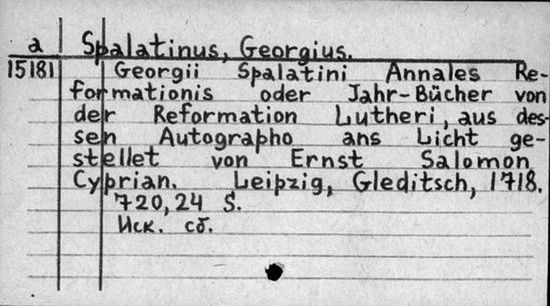 a Spalatinus, Georgius.
15181 Georgii Spalatini Annales Re-
formationis oder Jahr-Bücher von
der Reformation Lutheri, aus des-
sen Autographo ans Licht ge-
stellet von Ernst Salomon
Cyprian. Leipzig, Gleditsch, 1718.
720,24 S.
Иск. сб.